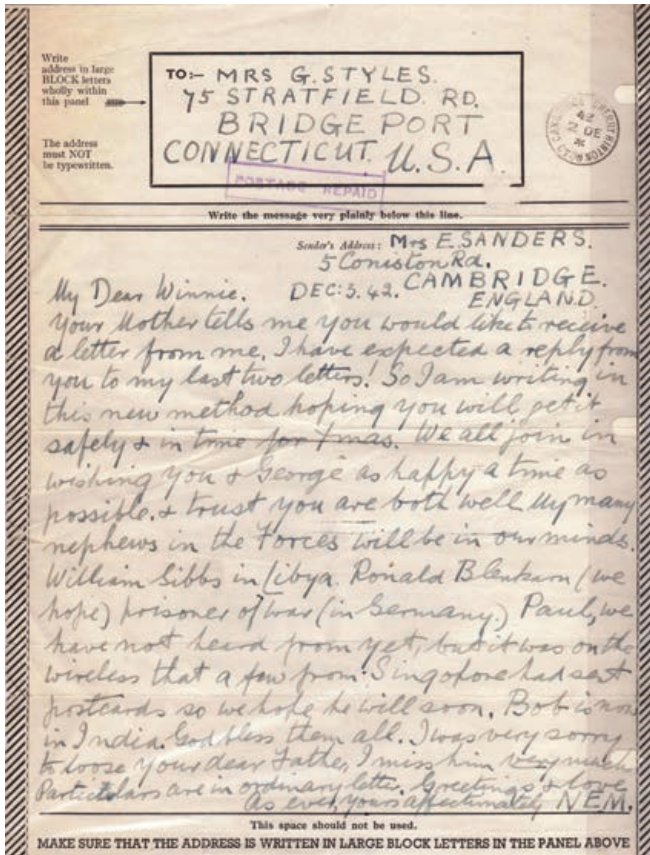 Write
address in large
BLOCK letters
wholly within
this panel
The address
must NOT
be typewritten.
TO:- MRS G. STYLES.
75 STRATFIELD. RD.
BRIDGE PORT
CONNECTICUT. U.S.A.
POSTAGE REPAID
42
2 DE
Write the message very plainly below this line.
Sender's Address: Mrs E. SANDERS.
5 Coniston Rd.
DEC: 3. 42. CAMBRIDGE.
ENGLAND.
My Dear Winnie.
Your Mother tells me you would like to receive
a letter from me. I have expected a reply from
you to my last two letters! So I am writing in
this new method hoping you will get it
safely & in time for Xmas. We all join in
wishing you & George as happy a time as
possible. & trust you are both well. My many
nephews in the Forces will be in our minds.
William Gibbs in Libya. Ronald Blenkarn (we
hope) prisoner of war (in Germany.) Paul, we
have not heard from yet, but it was on the
wireless that a few from Singopore had sent
postcards so we hope he will soon. Bob is now
in India. God bless them all. I was very sorry
to loose your dear Father, I miss him very much
Particulars are in ordinary letter. Greetings & love
As ever, yours affectionately NEM.
This space should not be used.
MAKE SURE THAT THE ADDRESS IS WRITTEN IN LARGE BLOCK LETTERS IN THE PANEL ABOVE